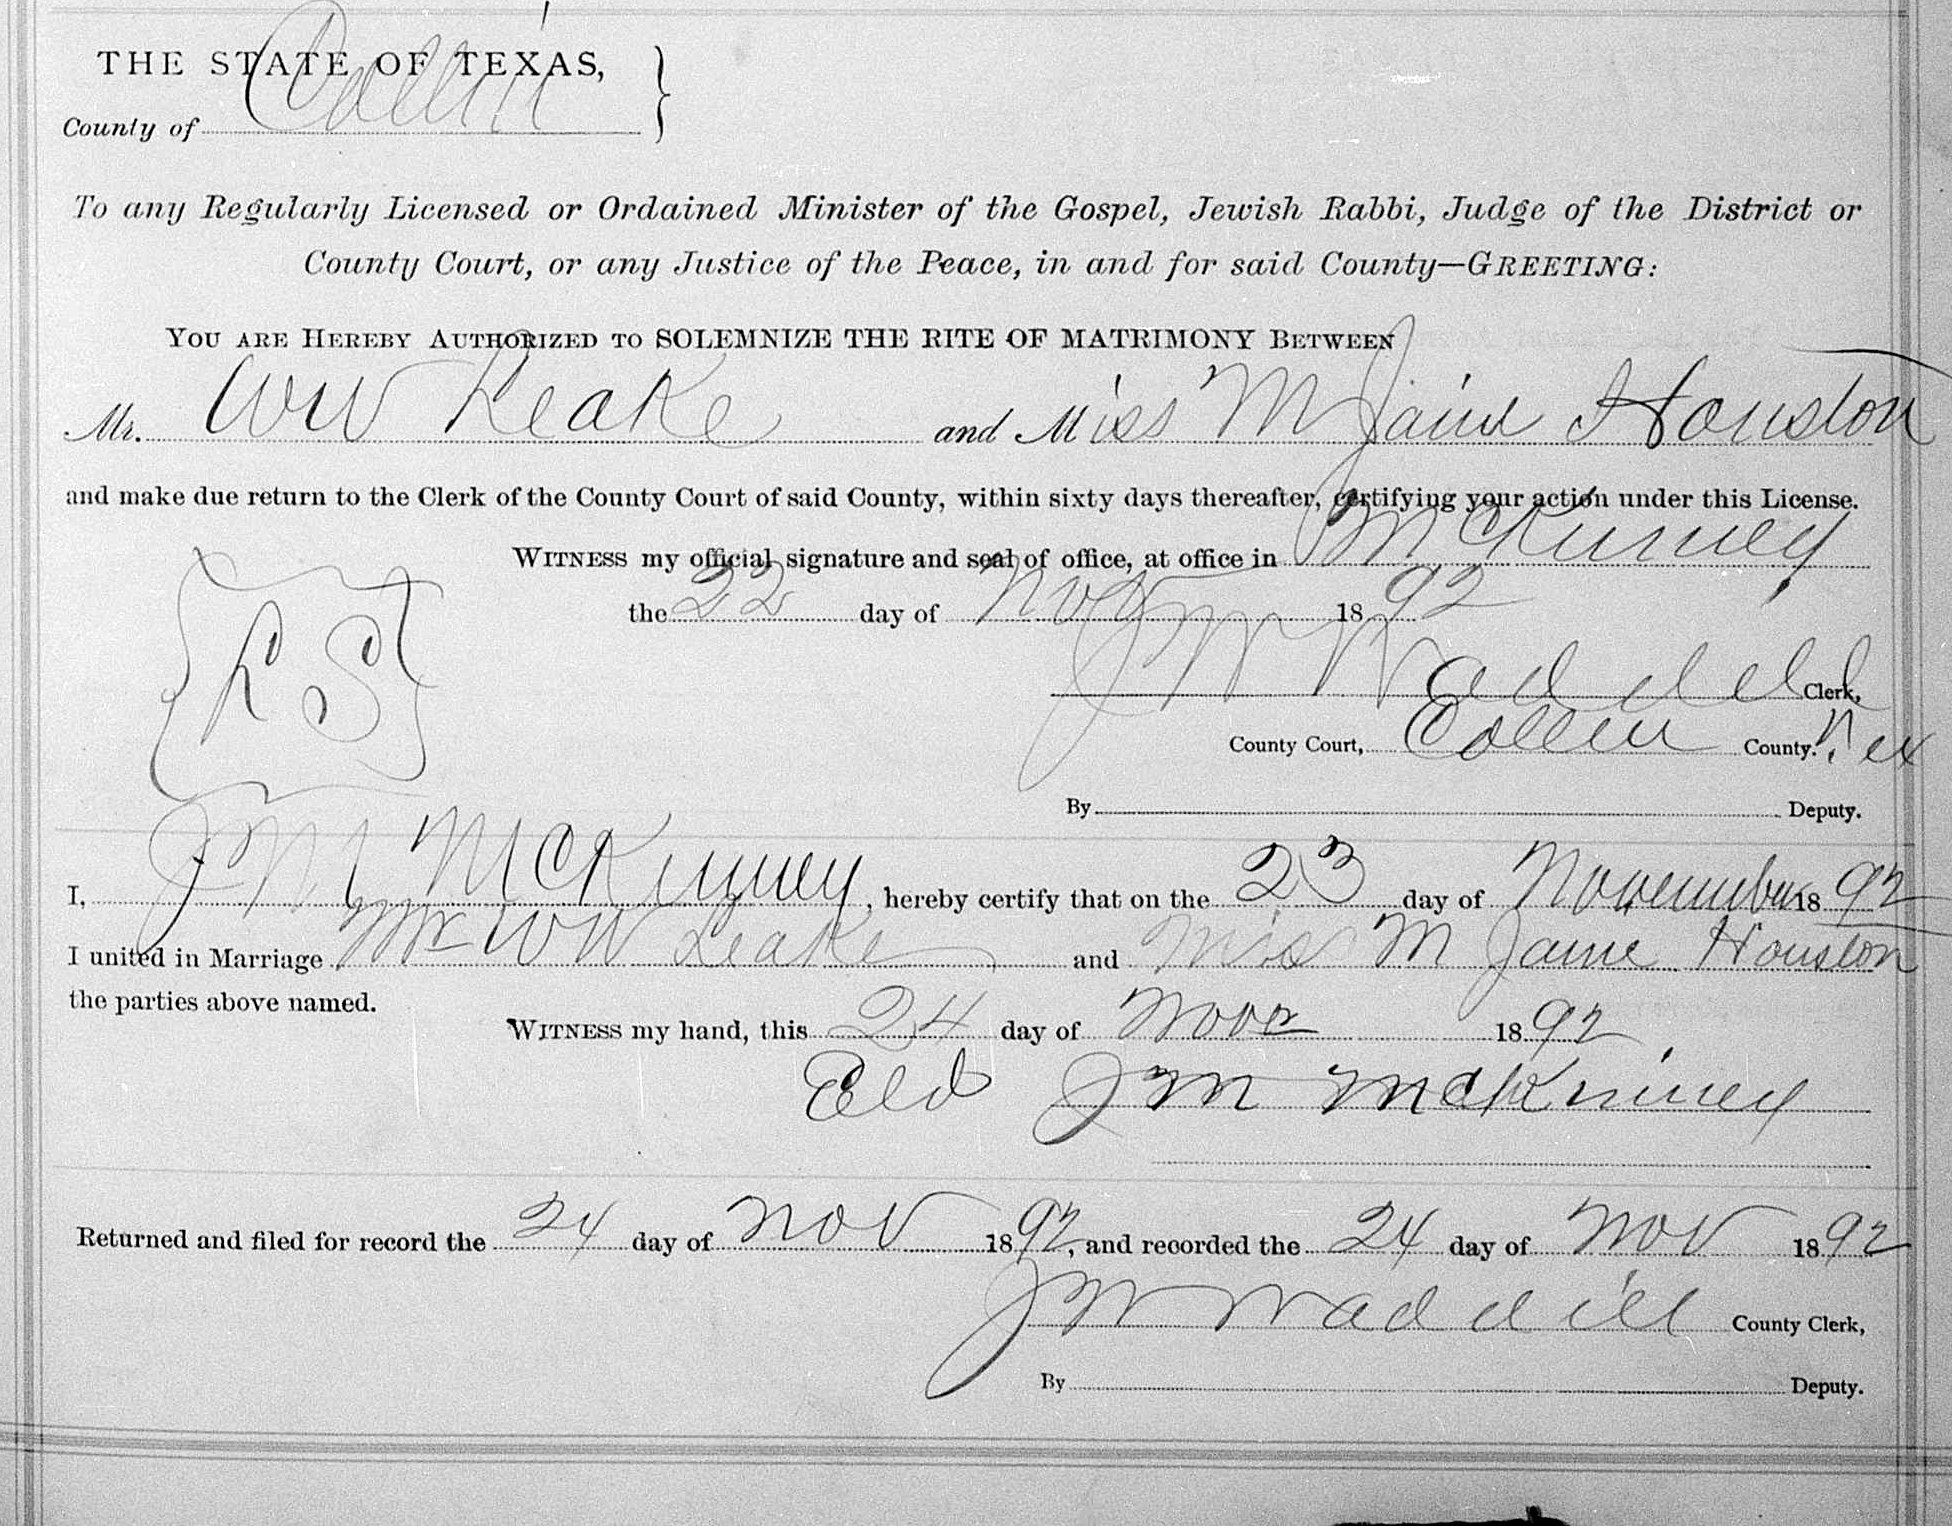 THE STATE OF TEXAS,
County of Collin
To any Regularly Licensed or Ordained Minister of the Gospel, Jewish Rabbi, Judge of the District or
County Court, or any Justice of the Peace, in and for said County—GREETING:
YOU ARE HEREBY AUTHORIZED TO SOLEMNIZE THE RITE OF MATRIMONY BETWEEN
Mr. WW Leake and Miss M Janie Houston
and make due return to the Clerk of the County Court of said County, within sixty days thereafter, certifying your action under this License.
WITNESS my official signature and seal of office, at office in McKinney
the 22 day of Nov 1892
L S
J W Waddill Clerk,
County Court, Collin County. Tex
By Deputy.
I, J M McKinney, hereby certify that on the 23 day of November 1892
I united in Marriage Mr WW Leake and Miss M Janie Houston
the parties above named.
WITNESS my hand, this 24 day of Novr 1892
Eld J M McKinney
Returned and filed for record the 24 day of Nov 1892, and recorded the 24 day of Nov 1892
J W Waddill County Clerk,
By Deputy.